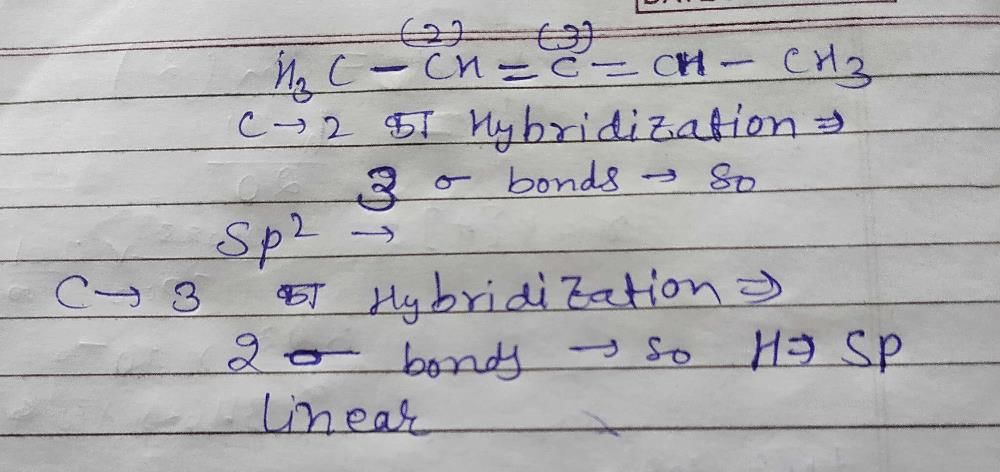 (2) (3)
H₃C – CH = C = CH – CH3
C → 2 का Hybridization ⇒
3 σ bonds → so
Sp² →
C → 3 का Hybridization ⇒
2 σ bonds → so H ⇒ SP
Linear